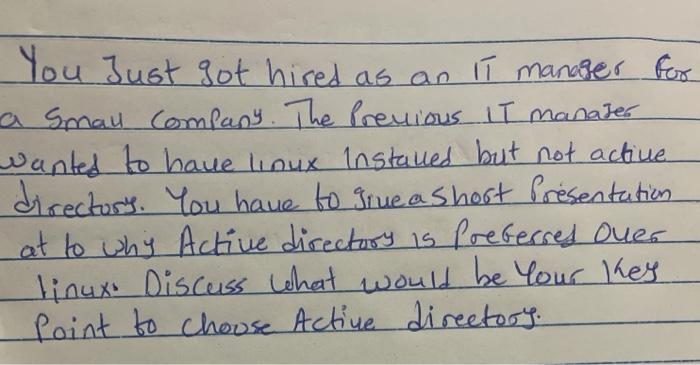 You Just got hired as an IT manager for
a small company. The Previous IT manager
wanted to have linux Installed but not active
directory. You have to give a short Presentation
at to why Active directory is Preferred over
linux. Discuss what would be Your Key
Point to choose Active directory.